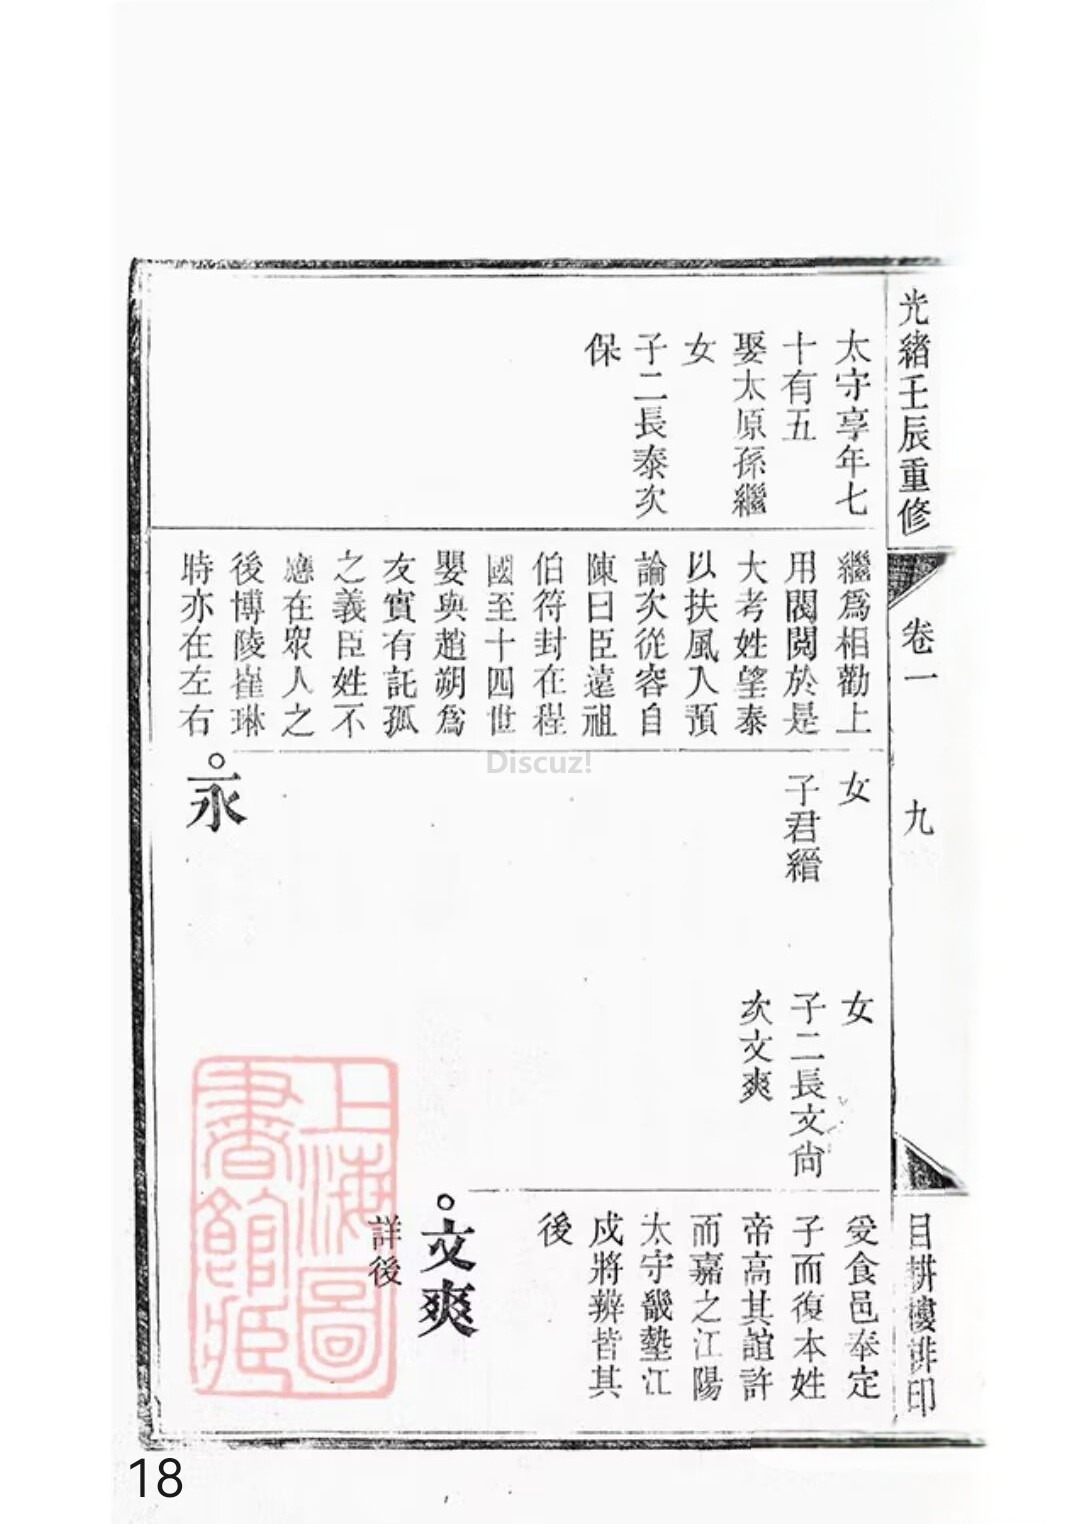 光緒壬辰重修
卷一
九
目耕樓排印
太守享年七
十有五
娶太原孫繼
女
子二長泰次
保
繼爲相勸上
用閥閱於是
大考姓望泰
以扶風入預
論次從容自
陳曰臣遠祖
伯符封在程
國至十四世
嬰與趙朔爲
友實有託孤
之義臣姓不
應在眾人之
後博陵崔琳
時亦在左右
女
子君縉
永
女
子二長文尙
次文爽
受食邑奉定
子而復本姓
帝高其誼許
而嘉之江陽
太守畿墊江
戍將辨皆其
後
文爽
詳後
上海圖
書館藏
Discuz!
18